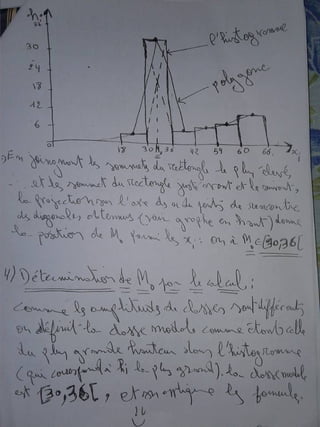 h
l'histogramme
30
24
polygone
18
12
6
18 30 42 59 60 66 xi
En joignant les sommets du rectangle le plus élevé,
et les sommet du rectangle juste avant et le suivant,
la projection sur l'axe des x de point de rencontre
de diagonales obtenues (voir graphe en haut) donne
la position de Mo parmi les xi : on a Mo ∈ [30,36[
4) Détermination de Mo par le calcul :
comme les amplitudes de classes sont différents
on définit la classe modale comme étant celle
du plus grande hauteur dans l'histogramme
(qui correspond à hi la plus grand). la classe modale
est [30,36[, et on applique la formule.